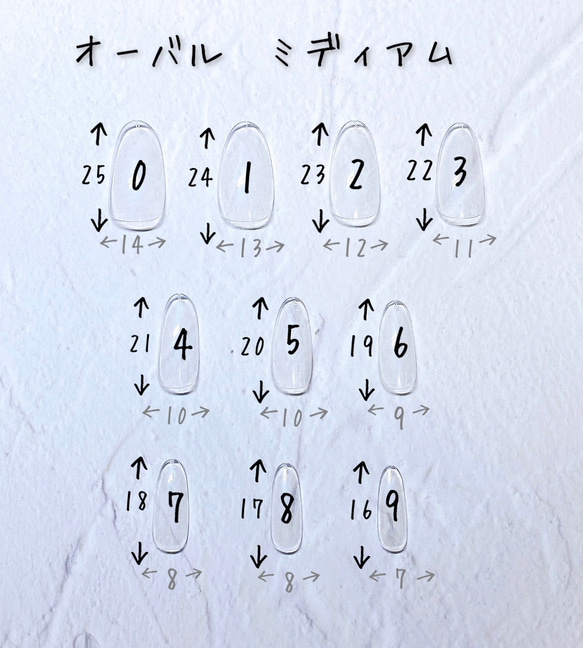 オーバル ミディアム
↑ 25 ↓ 0 ↑ 24 ↓ 1 ↑ 23 ↓ 2 ↑ 22 ↓ 3
←14→ ←13→ ←12→ ←11→
↑ 21 ↓ 4 ↑ 20 ↓ 5 ↑ 19 ↓ 6
←10→ ←10→ ←9→
↑ 18 ↓ 7 ↑ 17 ↓ 8 ↑ 16 ↓ 9
←8→ ←8→ ←7→